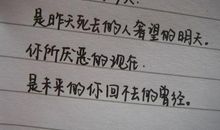 是昨天死去的人奢望的明天.
你所厌恶的现在.
是未来的你回不去的曾经。